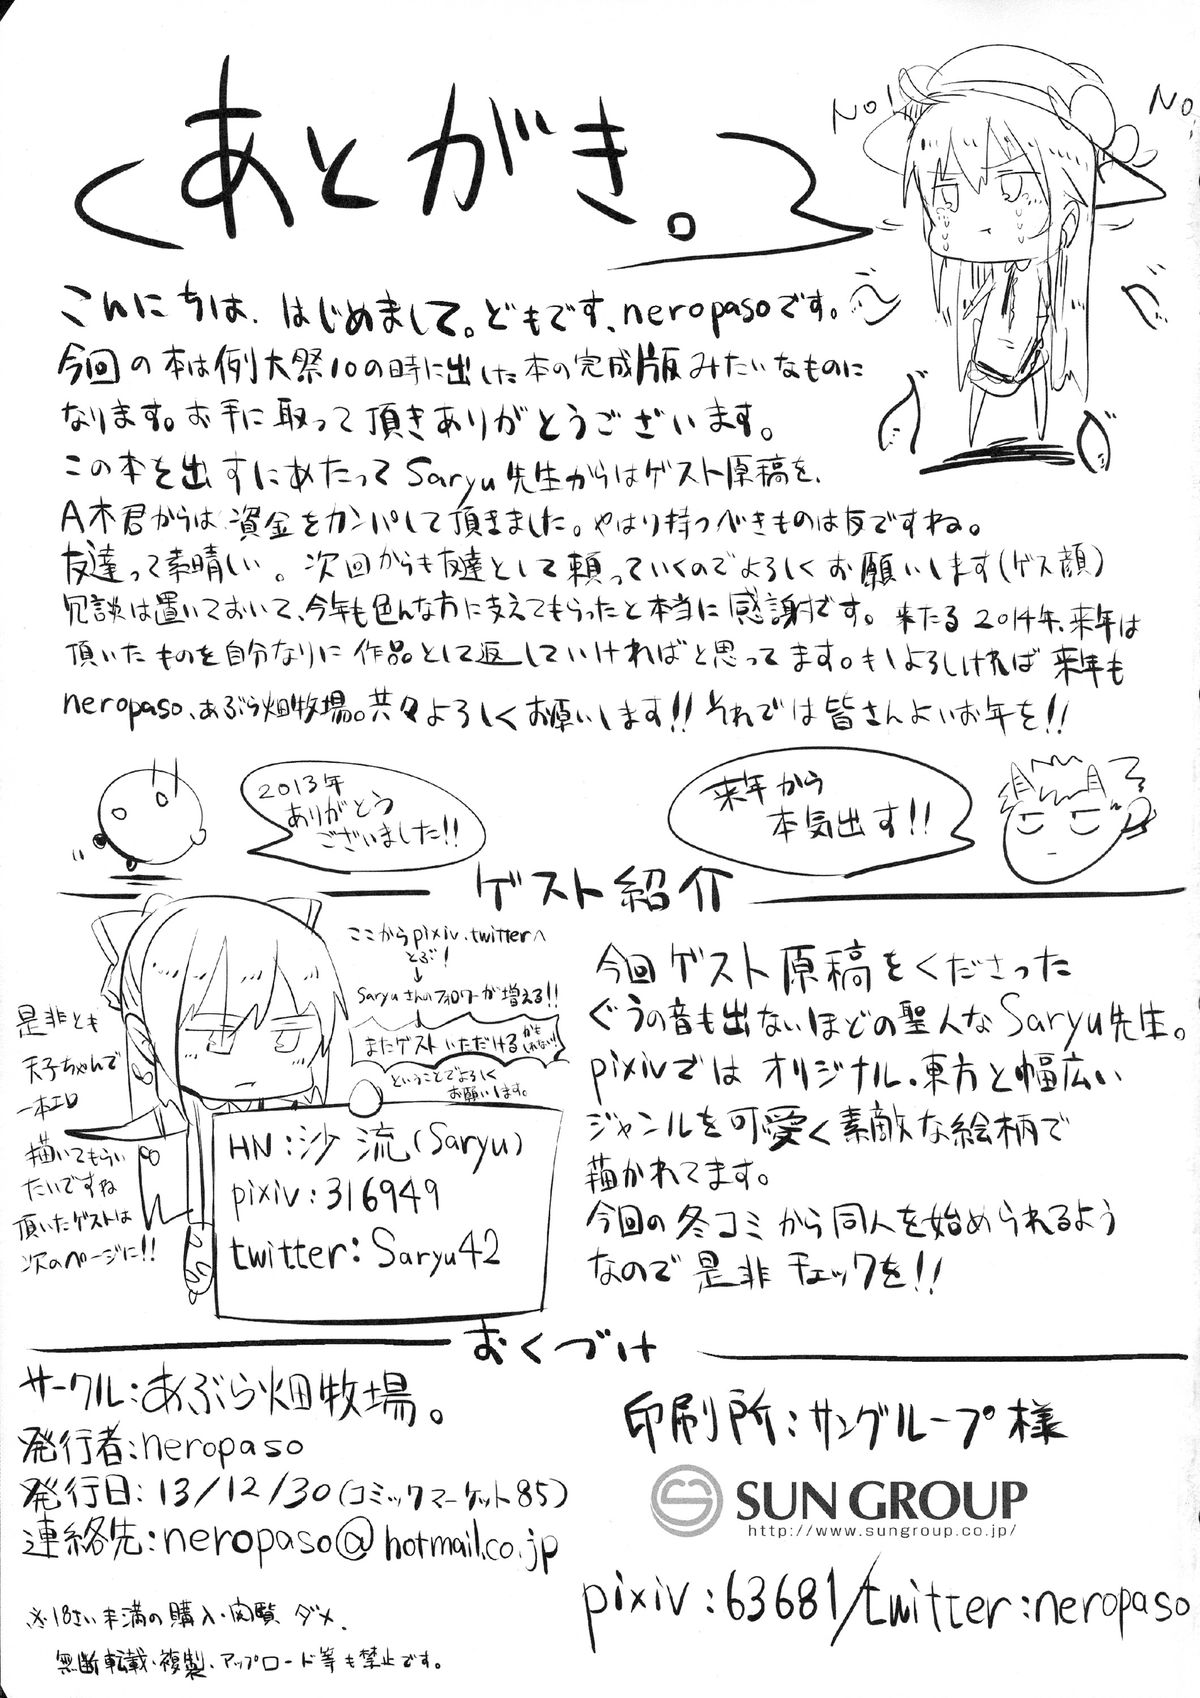 あとがき。
No!
No!
こんにちは、はじめまして。どもです、neropasoです。
今回の本は例大祭10の時に出した本の完成版みたいなものに
なります。お手に取って頂きありがとうございます。
この本を出すにあたってSaryu先生からはゲスト原稿を、
A木君からは資金をカンパして頂きました。やはり持つべきものは友ですね。
友達って素晴しい。次回からも友達として頼っていくのでよろしくお願いします(ゲス顔)
冗談は置いておいて、今年も色んな方に支えてもらったと本当に感謝です。来たる2014年、来年は
頂いたものを自分なりに作品として返していければと思ってます。もしよろしければ来年も
neropaso、あぶら畑牧場。共々よろしくお願いします!!それでは皆さんよいお年を!!
2013年
ありがとう
ございました!!
来年から
本気出す!!
ゲスト紹介
ここからpixiv、twitterへ
とぶ!
↓
Saryuさんのフォロワーが増える!!
↓
またゲストいただけるかもしれない!
ということでよろしく
お願いします。
是非とも
天子ちゃんで
一本エロ
描いてもらい
たいですね
頂いたゲストは
次のページに!!
HN:沙流(Saryu)
pixiv:316949
twitter:Saryu42
今回ゲスト原稿をくださった
ぐうの音も出ないほどの聖人なSaryu先生。
pixivではオリジナル、東方と幅広い
ジャンルを可愛く素敵な絵柄で
描かれてます。
今回の冬コミから同人を始められるよう
なので是非チェックを!!
おくづけ
サークル:あぶら畑牧場。
発行者:neropaso
発行日:13/12/30(コミックマーケット85)
連絡先:neropaso@hotmail.co.jp
※18さい未満の購入・閲覧ダメ、
無断転載、複製、アップロード等も禁止です。
印刷所:サングループ様
SUN GROUP
http://www.sungroup.co.jp/
pixiv:63681/twitter:neropaso